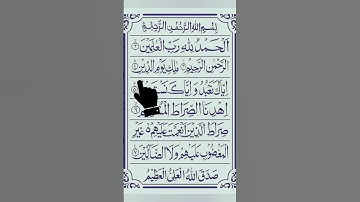 بِسْمِ اللهِ الرَّحْمٰنِ الرَّحِيْمِ
اَلْحَمْدُ لِلّٰهِ رَبِّ الْعٰلَمِيْنَ
الرَّحْمٰنِ الرَّحِيْمِ مٰلِكِ يَوْمِ الدِّيْنِ
اِيَّاكَ نَعْبُدُ وَ اِيَّاكَ
اِهْدِنَا الصِّرَاطَ
صِرَاطَ الَّذِيْنَ اَنْعَمْتَ عَلَيْهِمْ غَيْرِ
الْمَغْضُوْبِ عَلَيْهِمْ وَلَا الضَّآلِّيْنَ
صَدَقَ اللهُ الْعَلِیُّ الْعَظِیْمُ